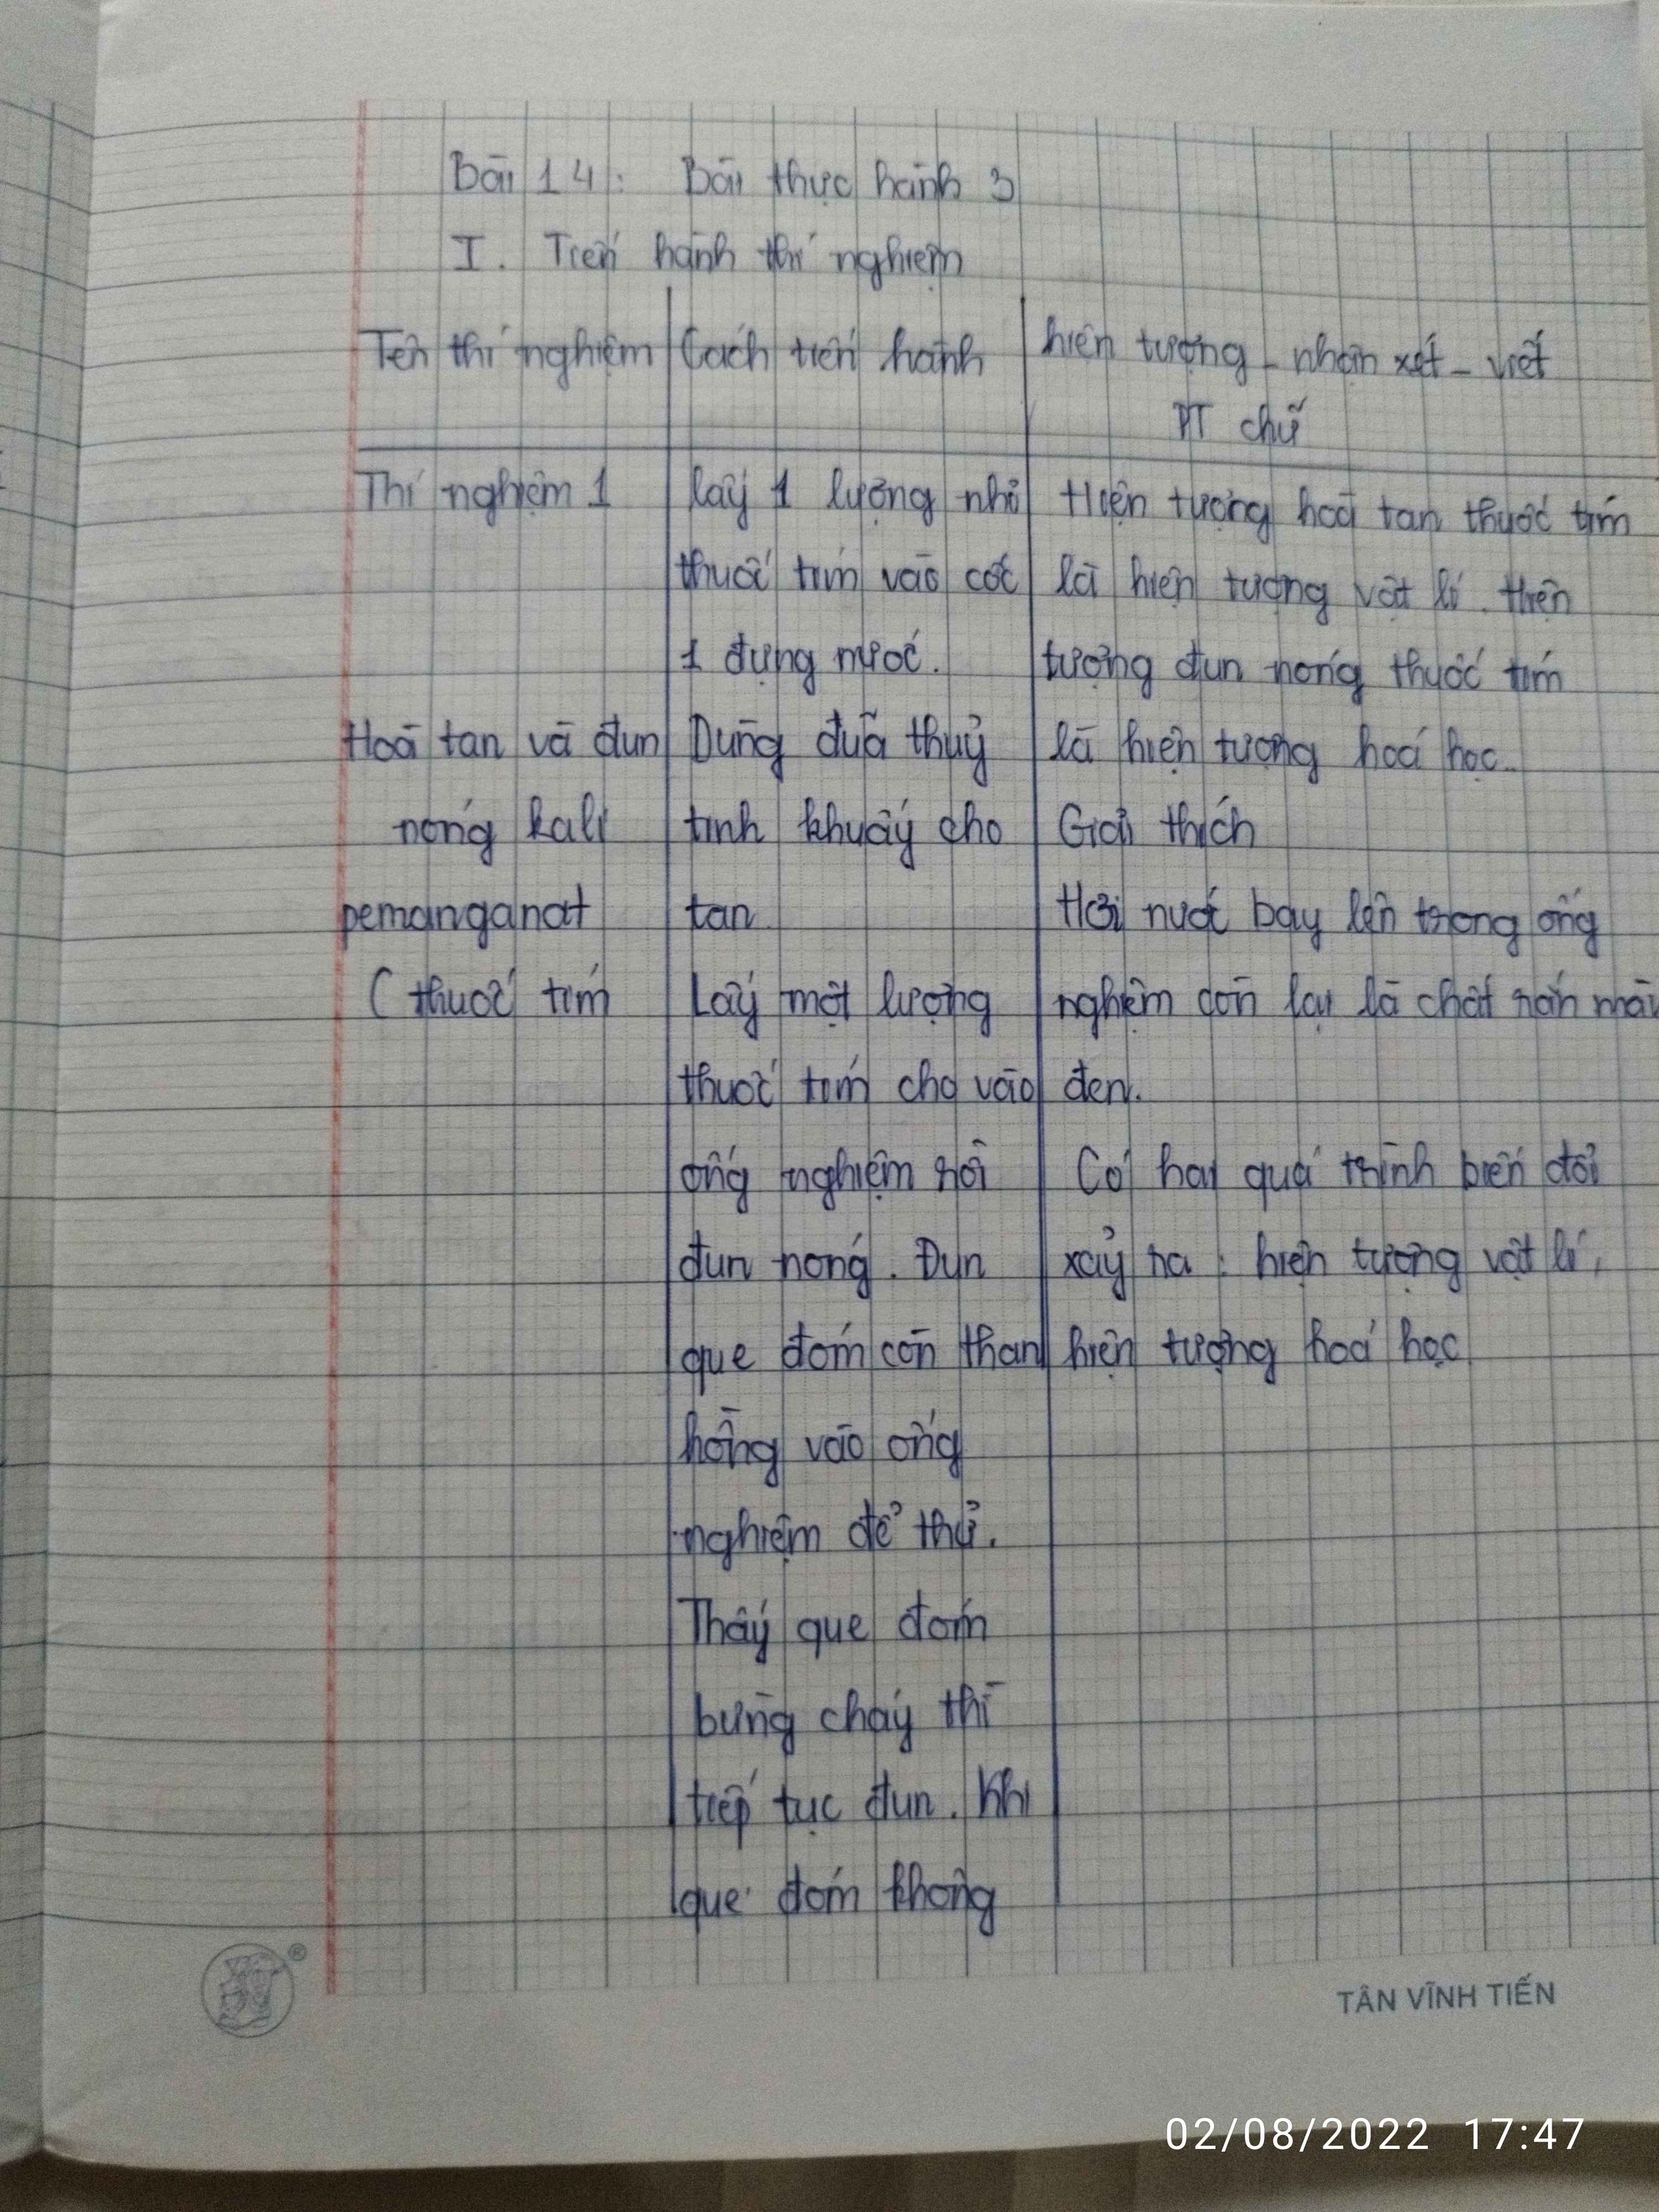 Bài 14: Bài thực hành 3
I. Tiến hành thí nghiệm
Tên thí nghiệm
Cách tiến hành
hiện tượng - nhận xét - viết
PT chữ
Thí nghiệm 1
Hoà tan và đun
nóng kali
pemanganat
( thuốc tím
lấy 1 lượng nhỏ
thuốc tím vào cốc
1 đựng nước.
Dùng đũa thuỷ
tinh khuấy cho
tan
Lấy một lượng
thuốc tím cho vào
ống nghiệm rồi
đun nóng. Đun
que đóm còn than
hồng vào ống
nghiệm để thử.
Thấy que đóm
bùng cháy thì
tiếp tục đun. Khi
que đóm không
Hiện tượng hoà tan thuốc tím
là hiện tượng vật lí. Hiện
tượng đun nóng thuốc tím
là hiện tượng hoá học.
Giải thích
Hơi nước bay lên trong ống
nghiệm còn lại là chất rắn màu
đen.
Có hai quá trình biến đổi
xảy ra : hiện tượng vật lí,
hiện tượng hoá học
TÂN VĨNH TIẾN
02/08/2022 17:47